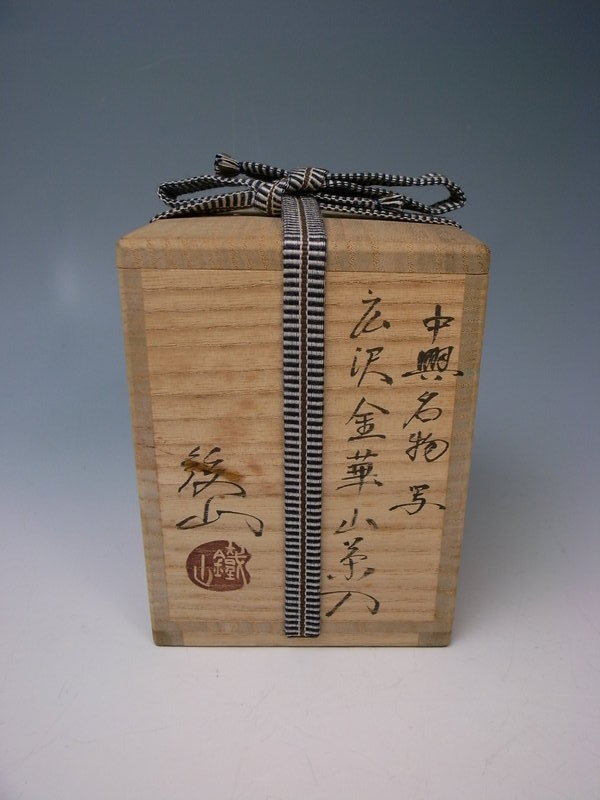 中興名物写
広沢金華山茶入
鐵山